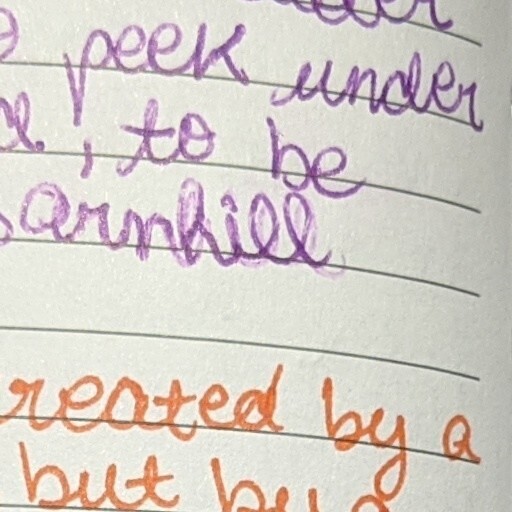 peek under
, to be
arnhill
reated by a
but by a